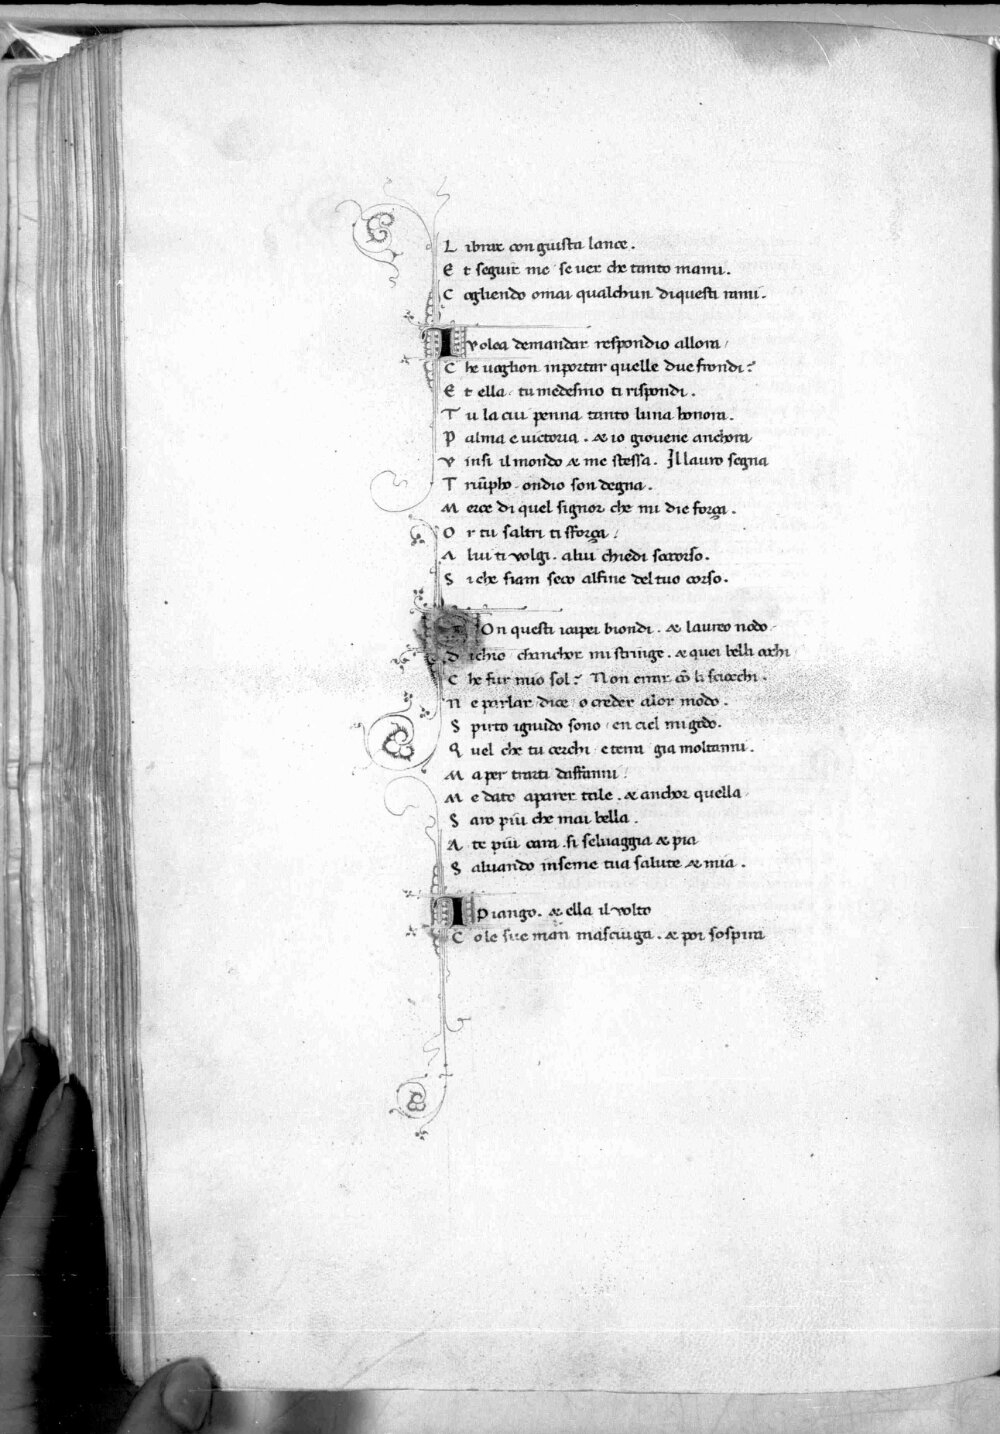 L ibrar con giusta lance.
E t seguir me se ver che tanto mami.
C ogliendo omai qualchun diquesti rami.
I volea demandar respondio allora /
C he voglion inportar quelle due frondi?
E t ella. tu medesmo ti rispondi.
T u la cui penna tanto luna honora.
P alma e victoria. & io giovene anchora
V insi il mondo & me stessa. Il lauro segna
T riūpho. ondio son degna.
M erce di quel signor che mi die força.
O r tu saltri ti sforça /
A lui ti volgi. a lui chiedi soccorso.
S i che siam seco alfine del tuo corso.
S On questi icapei biondi. & laureo nodo
d ichio chanchor mi stringe. & quei belli occhi
C he fur mio sol? Non errar cō li sciocchi.
N e parlar / dice / o creder alor modo.
S pirto ignudo sono / en ciel mi godo.
Q uel che tu cerchi e terra gia moltanni.
M a per trarti daffanni /
M e dato a parer tale. & anchor quella
S aro piu che mai bella.
A te piu cara. si selvaggia & pia
S alvando inseme tua salute & mia.
I Piango. & ella il volto
C o le sue man masciuga. & poi sospira